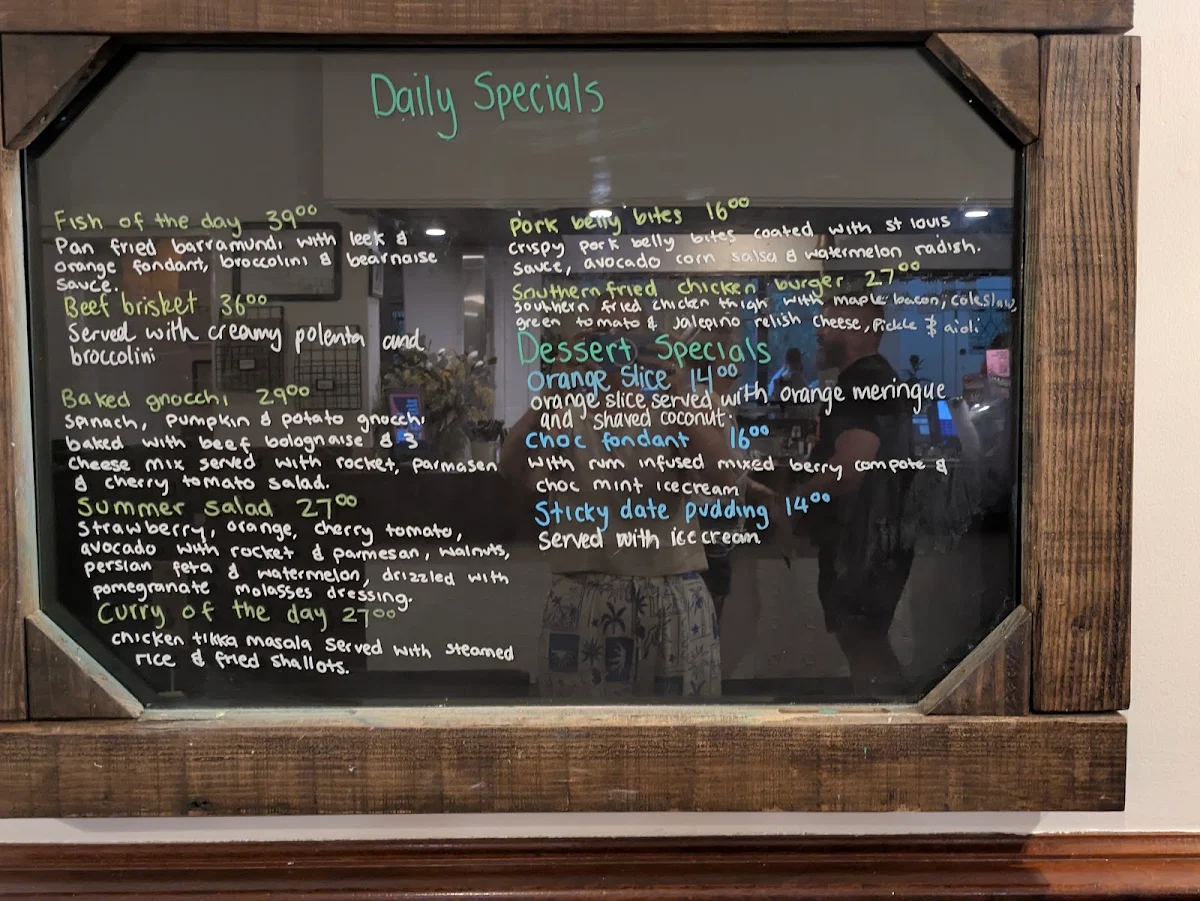 Daily Specials
Fish of the day 39⁰⁰
Pan fried barramundi with leek &
orange fondant, broccolini & bearnaise
sauce.
Beef brisket 36⁰⁰
Served with creamy polenta and
broccolini
Baked gnocchi 29⁰⁰
spinach, pumpkin & potato gnocchi
baked with beef bolognaise & 3
cheese mix served with rocket, parmasen
& cherry tomato salad.
Summer salad 27⁰⁰
Strawberry, orange, cherry tomato,
avocado with rocket & parmesan, walnuts,
persian feta & watermelon, drizzled with
pomegranate molasses dressing.
Curry of the day 27⁰⁰
chicken tikka masala served with steamed
rice & fried shallots.
Pork belly bites 16⁰⁰
crispy pork belly bites coated with st louis
sauce, avocado corn salsa & watermelon radish.
Southern fried chicken burger 27⁰⁰
southern fried chicken thigh with maple bacon, coleslaw,
green tomato & Jalepino relish cheese, pickle & aioli
Dessert Specials
Orange Slice 14⁰⁰
orange slice served with orange meringue
and shaved coconut.
Choc fondant 16⁰⁰
with rum infused mixed berry compote &
choc mint icecream
Sticky date pudding 14⁰⁰
served with ice cream